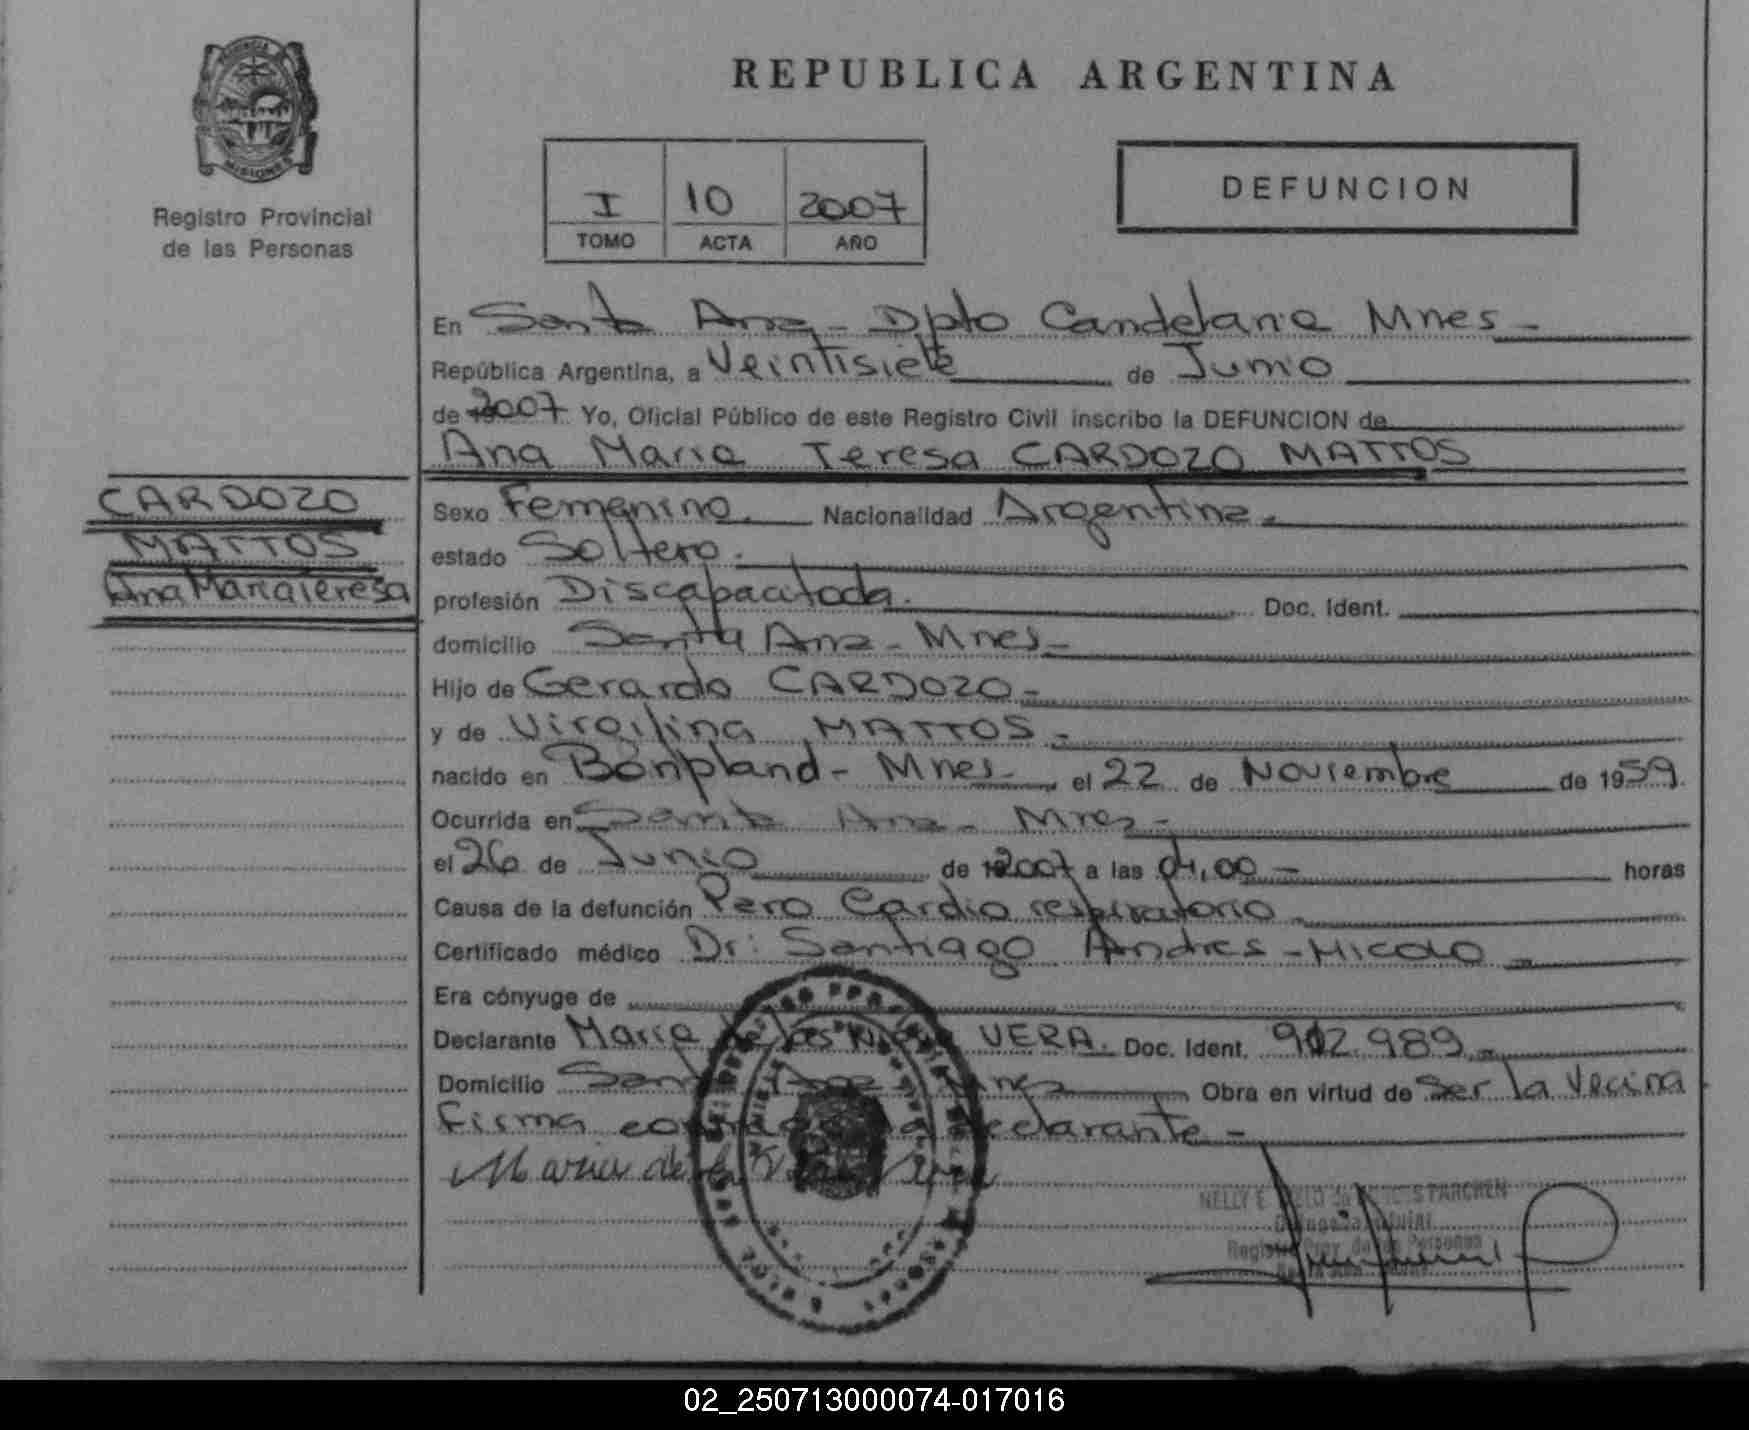 PROVINCIA DE
MISIONES
Registro Provincial
de las Personas
REPUBLICA ARGENTINA
I 10 2007
TOMO ACTA AÑO
DEFUNCION
En Santa Ana - Dpto Candelaria Mnes -
República Argentina, a Veintisiete de Junio
de 2007 Yo, Oficial Público de este Registro Civil inscribo la DEFUNCION de
Ana Maria Teresa CARDOZO MATTOS
CARDOZO
MATTOS
Ana Maria Teresa
Sexo Femenino. Nacionalidad Argentina.
estado Soltero.
profesión Discapacitada. Doc. Ident.
domicilio Santa Ana - Mnes -
Hijo de Gerardo CARDOZO -
y de Virgilina MATTOS -
nacido en Bonpland - Mnes - el 22 de Noviembre de 1959.
Ocurrida en Santa Ana - Mnes -
el 26 de Junio de 2007 a las 04,00 - horas
Causa de la defunción Paro Cardio respiratorio -
Certificado médico Dr: Santiago Andres -
Era cónyuge de
Declarante Maria de las VERA. Doc. Ident. 989 -
Domicilio Santa Ana Mnes Obra en virtud de Ser la Vecina
Firma la declarante -
Maria de
NELLY E. PARCHEN
Registro Prov. de las Personas
02_250713000074-017016